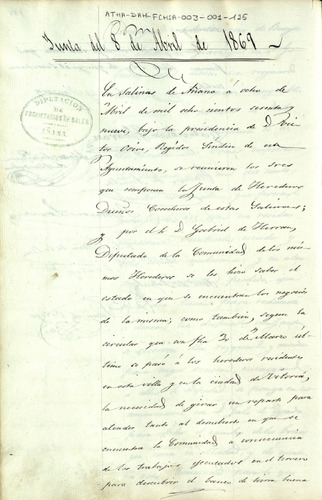 ATHA-DAH-FCHSA-003-001-125
Junta del 8 de Abril de 1869
DIPUTACION
DE
PROPIETARIOS DE SALES
AÑANA
En Salinas de Añana á ocho de
Abril de mil ocho cientos sesenta y
nueve, bajo la presidencia de D.
Regidor Sindico de este
Ayuntamiento, se reunieron los Sres
que componen la Junta de Herederos
Dueños Cosecheros de estas Salinas;
y por el Sr. D. Gabriel de Herran,
Diputado de la Comunidad de los mis-
mos Herederos se les hizo saber el
estado en que se encuentran los negocios
de la misma; como tambien, segun la
circular que en fha 20 de Marzo úl-
timo se pasó á los herederos residentes
en esta villa y en la ciudad de Vitoria,
la necesidad de girar un reparto para
atender tanto al descubierto en que se
encuentra la Comunidad á consecuencia
de los trabajos ejecutados en el terreno
para descubrir el banco de tierra buena